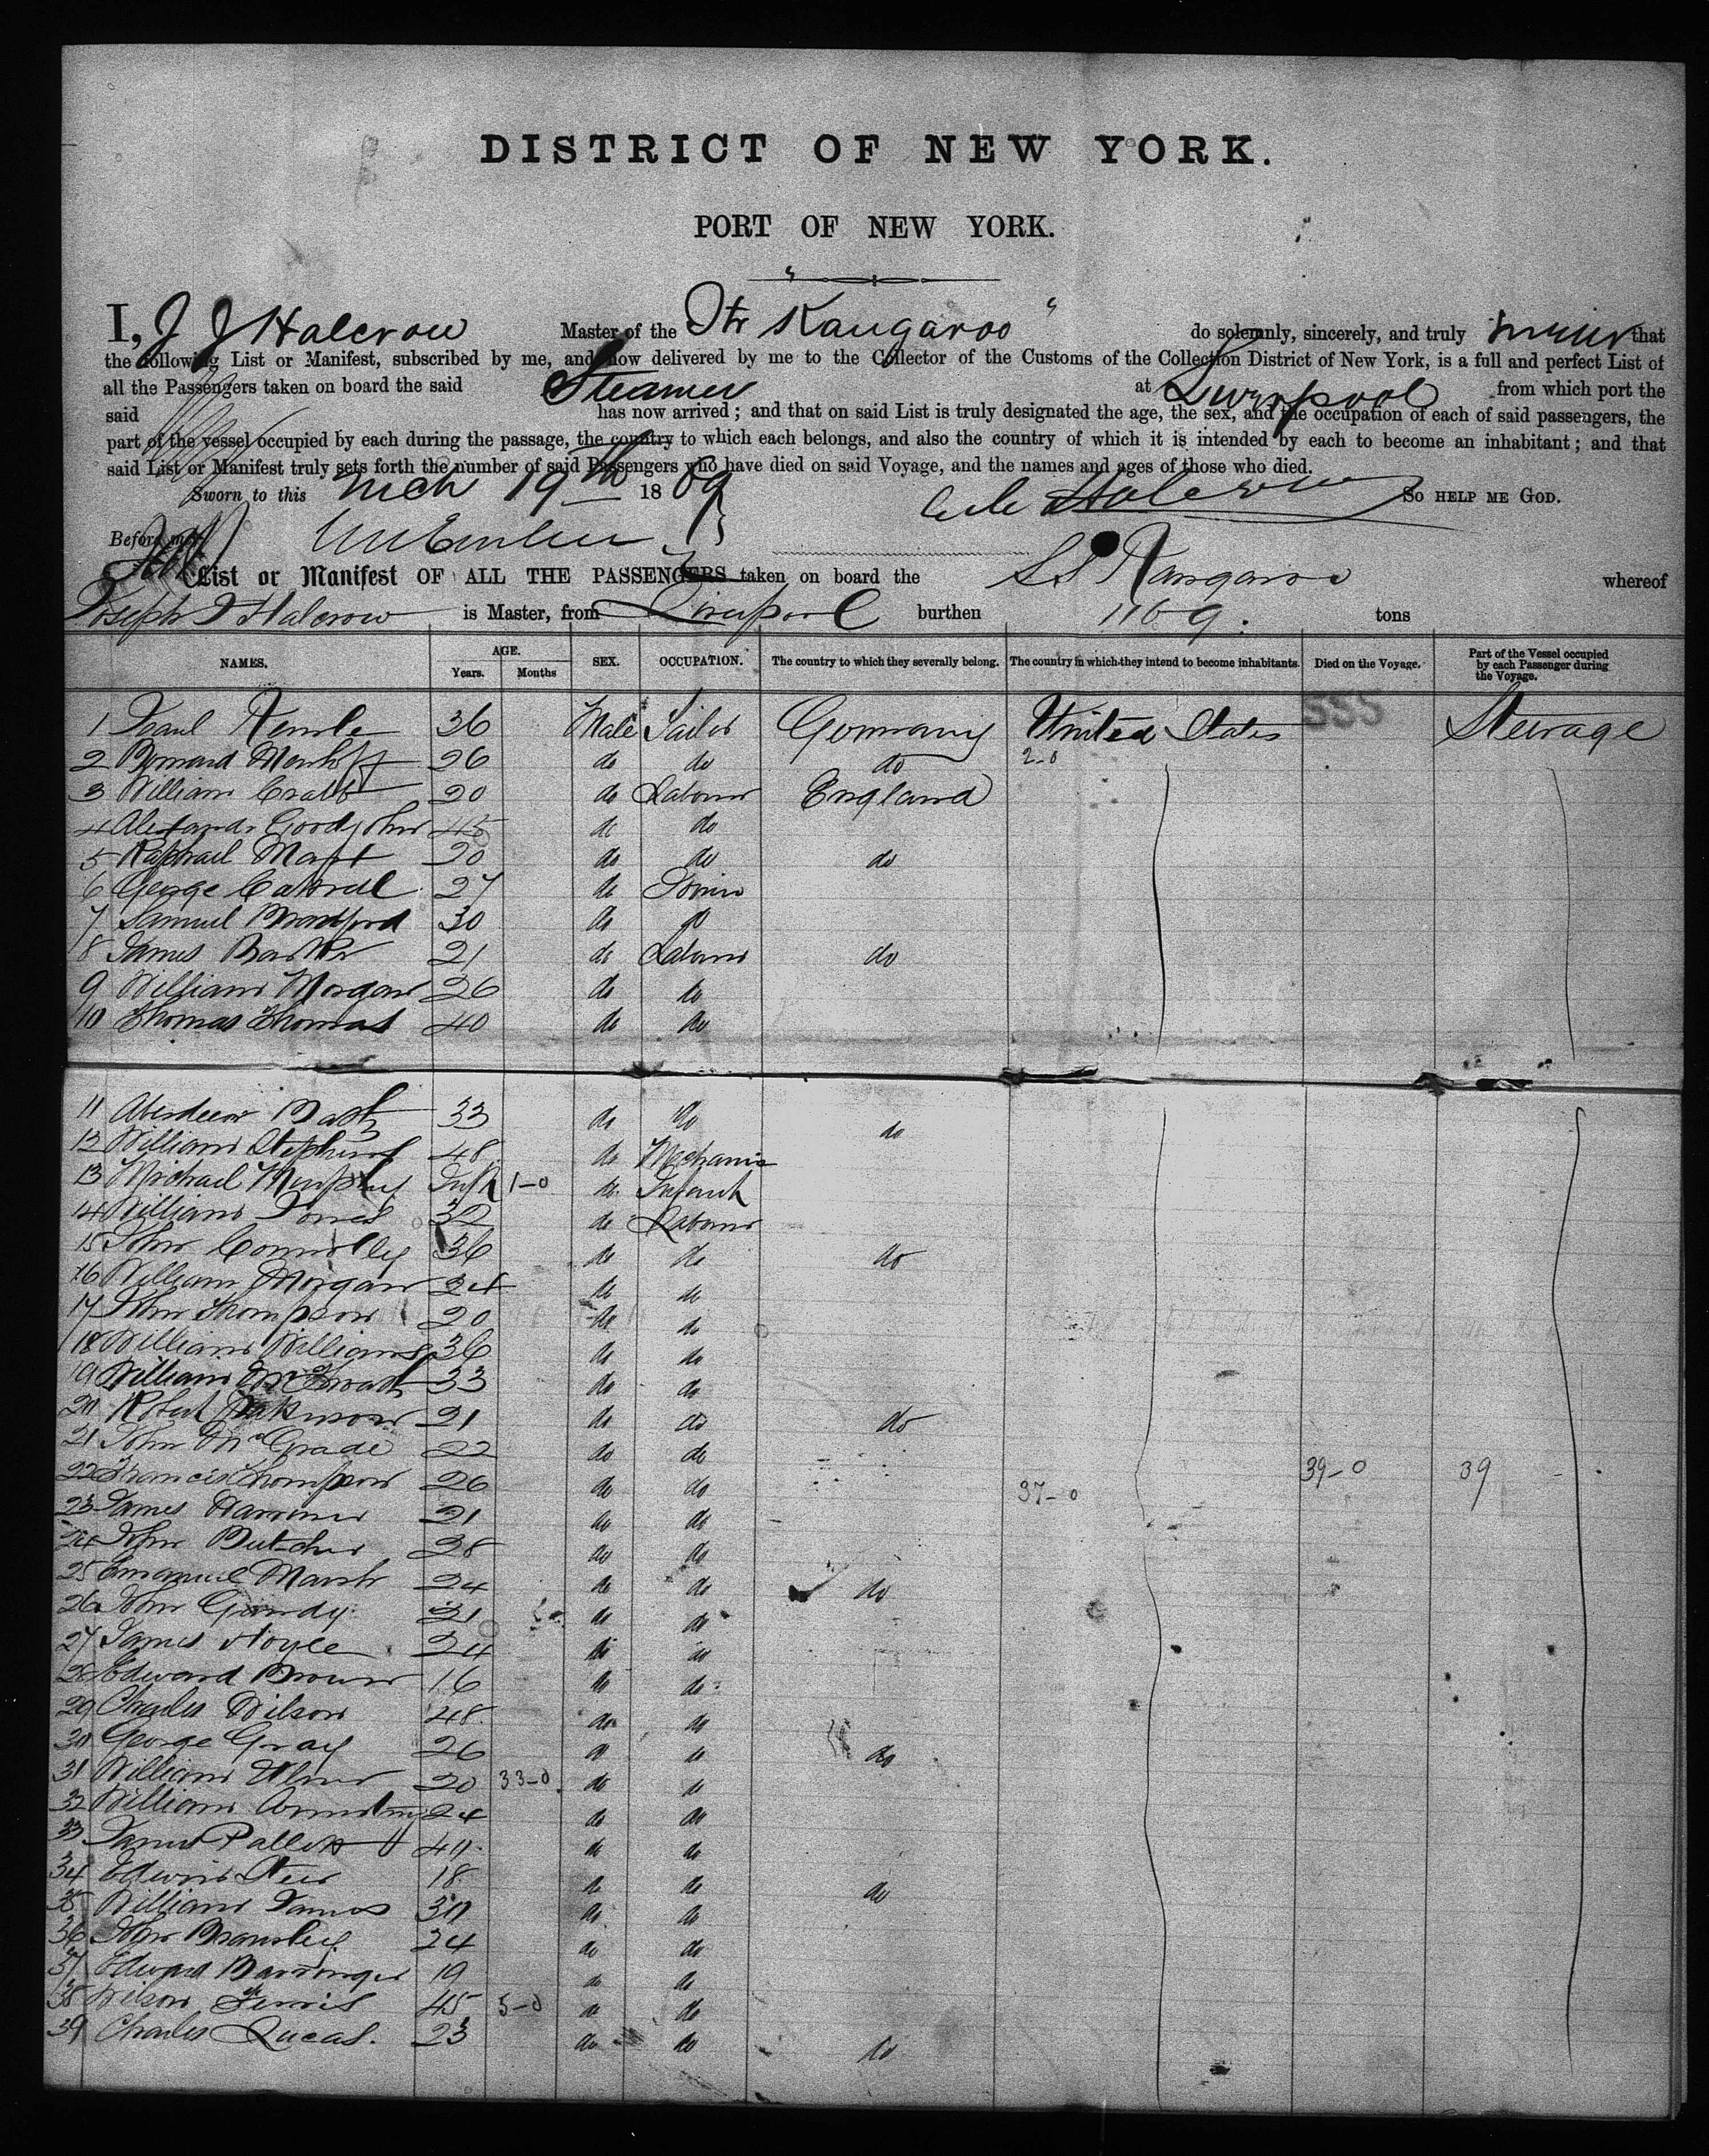 DISTRICT OF NEW YORK.
PORT OF NEW YORK.
I, J J Halcrow Master of the Str "Kangaroo" do solemnly, sincerely, and truly swear that
the following List or Manifest, subscribed by me, and now delivered by me to the Collector of the Customs of the Collection District of New York, is a full and perfect List of
all the Passengers taken on board the said Steamer at Liverpool from which port the
said has now arrived; and that on said List is truly designated the age, the sex, and the occupation of each of said passengers, the
part of the vessel occupied by each during the passage, the country to which each belongs, and also the country of which it is intended by each to become an inhabitant; and that
said List or Manifest truly sets forth the number of said Passengers who have died on said Voyage, and the names and ages of those who died.
Sworn to this Mch 19th 1869 Halcrow SO HELP ME GOD.
Before me
List or Manifest OF ALL THE PASSENGERS taken on board the SS Kangaroo whereof
Joseph J Halcrow is Master, from Liverpool burthen 1169. tons
NAMES. AGE. Years. Months SEX. OCCUPATION. The country to which they severally belong. The country in which they intend to become inhabitants. Died on the Voyage. Part of the Vessel occupied by each Passenger during the Voyage.
555
1 36 Male Sailor Germany United States Steerage
2 26 do do do 2-0
3 William Crabb 20 do Labour England
4 45 do do
5 Raphael 20 do do do
6 George 27 do
7 Samuel Bradford 30 do do
8 James 21 do Labour do
9 William Morgan 26 do do
10 Thomas Thomas 40 do do
11 33 do do do
12 William Stephens 48 do Mechanic
13 Michael Murphy Inft 1-0 do Infant
14 William Jones 32 do Labour
15 John Connolley 36 do do do
16 William Morgan 24 do do
17 John Thompson 20 do do
18 William Williams 36 do do
19 William 33 do do
20 Robert 21 do do do
21 John McGrade 22 do do
22 Francis Thompson 26 do do 37-0 39-0 39
23 James 21 do do
24 John Butcher 28 do do
25 Emanuel Marsh 24 do do do
26 John Grundy 21 do do
27 James Hoyle 24 do do
28 Edward Brown 16 do do
29 Charles Wilson 48 do do
30 George Gray 26 do do do
31 William 20 33-0 do do
32 William Armstrong 24 do do
33 James 40 do do
34 Edwin 18 do do do
35 William James 30 do do
36 John 24 do do
37 Edward Barringer 19 do do
38 Wilson 45 5-0 do do
39 Charles Lucas. 23 do do do